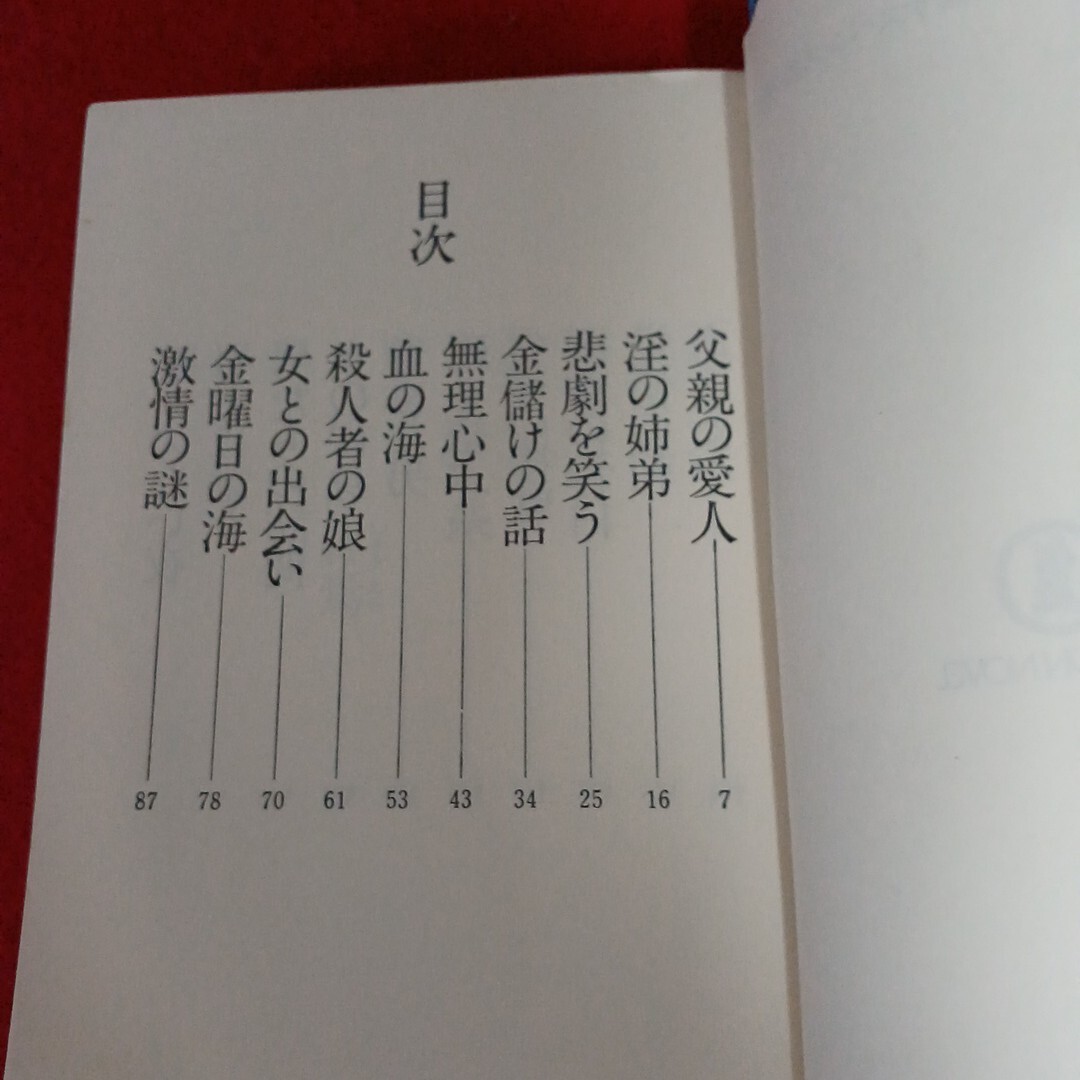 目次
父親の愛人 7
淫の姉弟 16
悲劇を笑う 25
金儲けの話 34
無理心中 43
血の海 53
殺人者の娘 61
女との出会い 70
金曜日の海 78
激情の謎 87